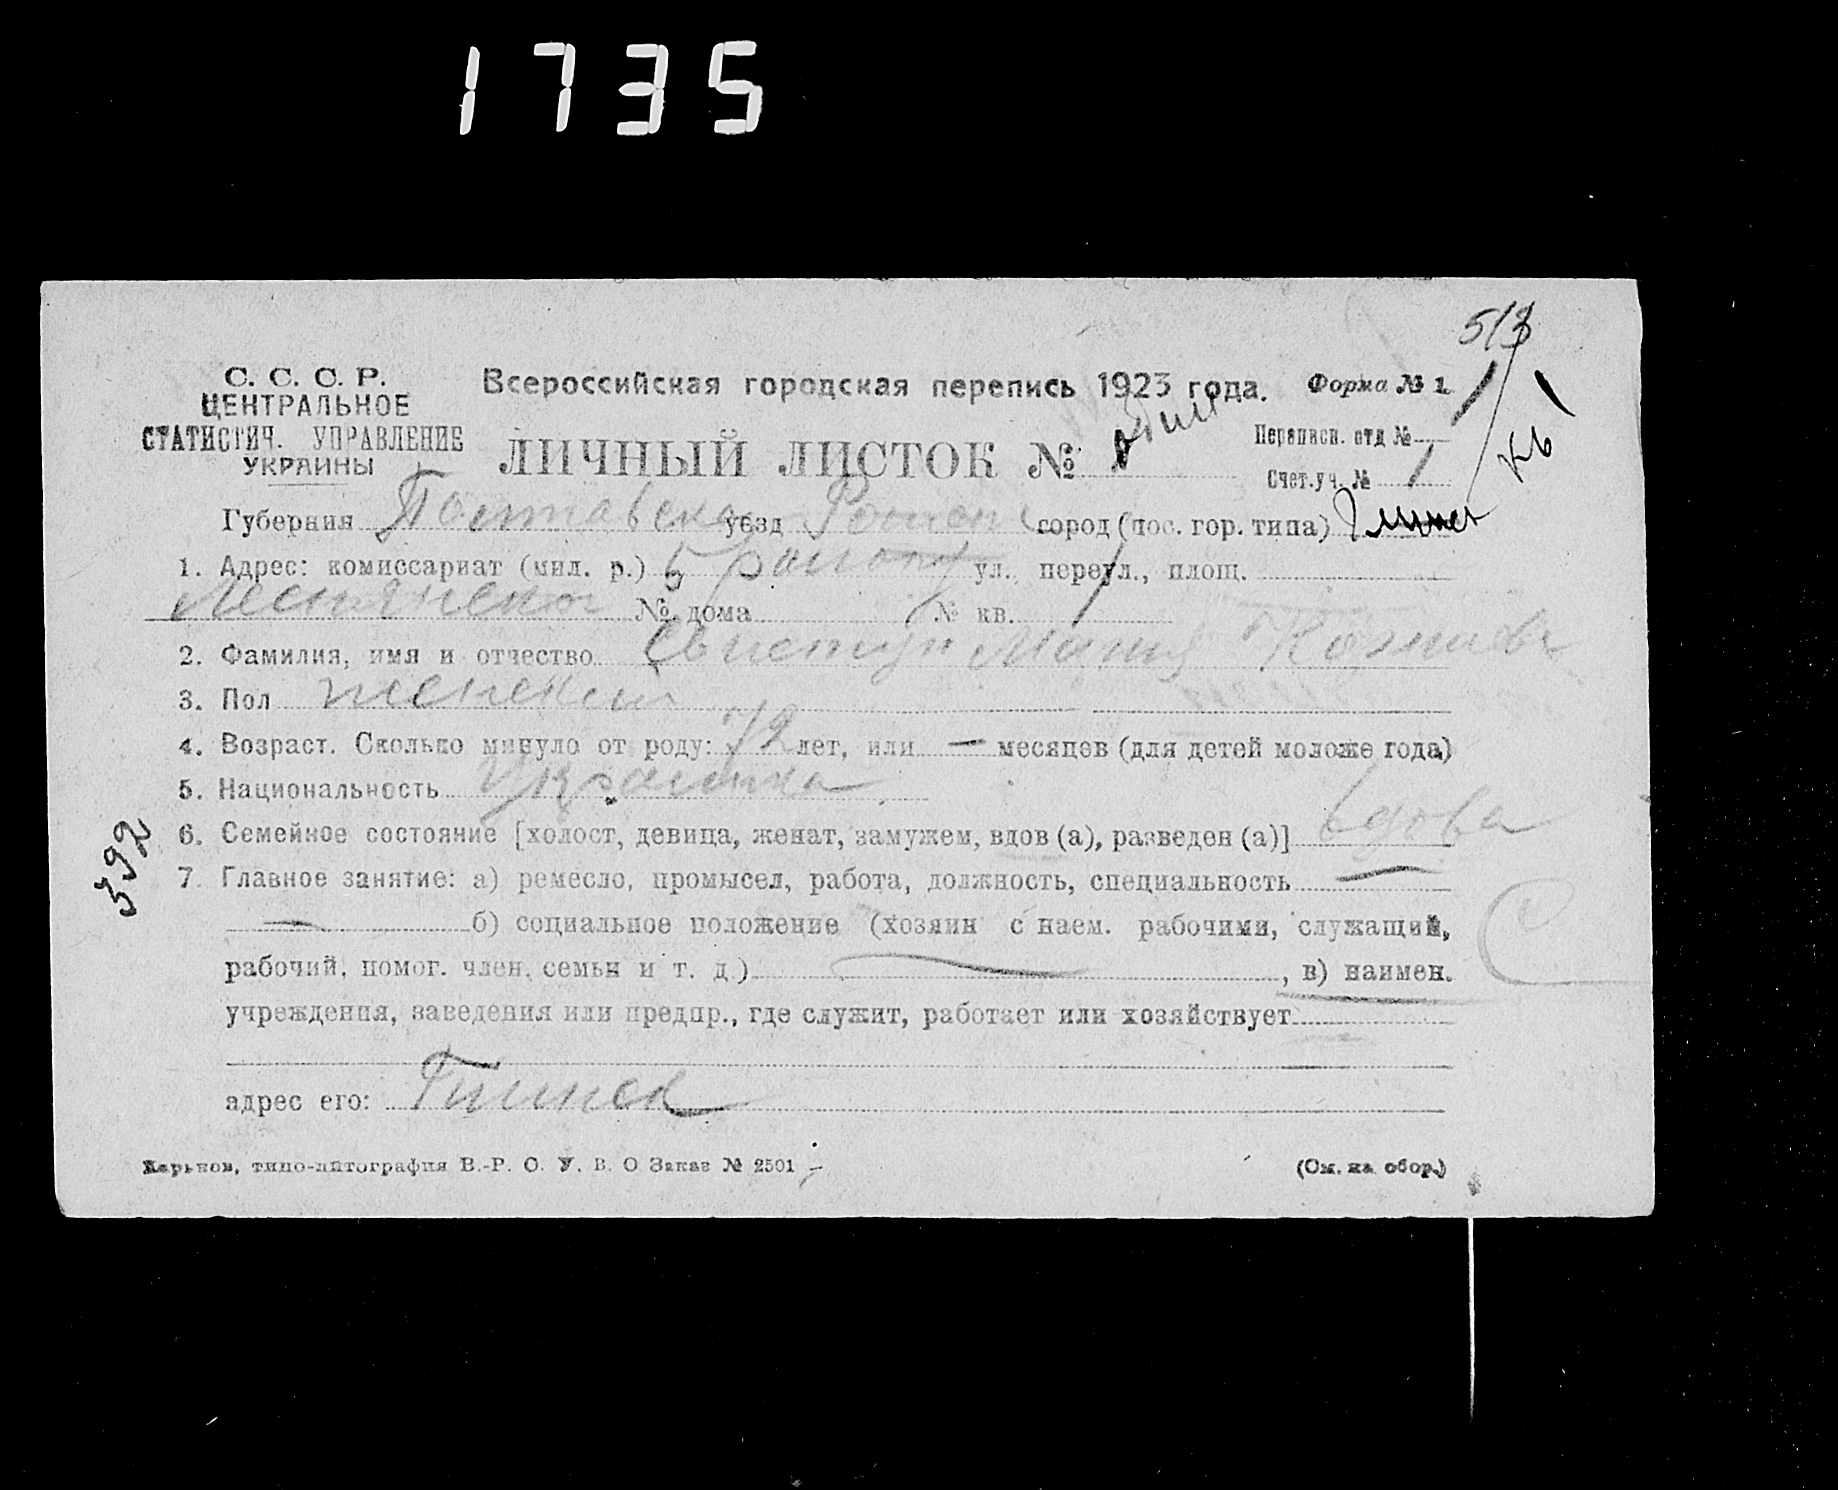 1735
513
С. С. С. Р.
ЦЕНТРАЛЬНОЕ
СТАТИСТИЧ. УПРАВЛЕНИЕ
УКРАИНЫ
Всероссийская городская перепись 1923 года. Форма № 1
ЛИЧНЫЙ ЛИСТОК №
Переписн. отд №
Счет. уч. № 1
Губерния Полтавская уезд город (пос. гор. типа)
1. Адрес: комиссариат (мил. р.) 5 ул., переул., площ.
№ дома № кв. 1
2. Фамилия, имя и отчество Свистун Мария
3. Пол женский
4. Возраст. Сколько минуло от роду: 72 лет, или — месяцев (для детей моложе года)
5. Национальность Украинка
6. Семейное состояние [холост, девица, женат, замужем, вдов (а), разведен (а)] вдова
7. Главное занятие: а) ремесло, промысел, работа, должность, специальность —
— б) социальное положение (хозяин с наем. рабочими, служащий,
рабочий, помог. член. семьи и т. д.) — , в) наимен.
учреждения, заведения или предпр., где служит, работает или хозяйствует
адрес его: Глинск
392
Харьков, типо-литография В.-Р. С. У. В. О Заказ № 2501
(См. на обор.)